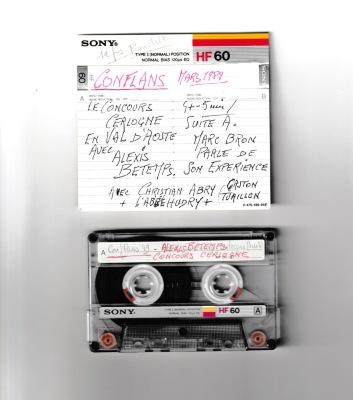 SONY®
TYPE I (NORMAL) POSITION
NORMAL BIAS 120µs EQ
HF 60
60
CONFLANS MARS 1989
A
B
LE CONCOURS
CERLOGNE
EN VAL D'AOSTE
AVEC
ALEXIS
BETEMPS,
SUITE A.
MARC BRON
PARLE DE
SON EXPÉRIENCE
AVEC CHRISTIAN ABRY
GASTON
TUAILLON
+ L'ABBÉ HUDRY +
SONY
A
ALEXIS BETEMPS
CONCOURS CERLOGNE
SONY
HF 60
A